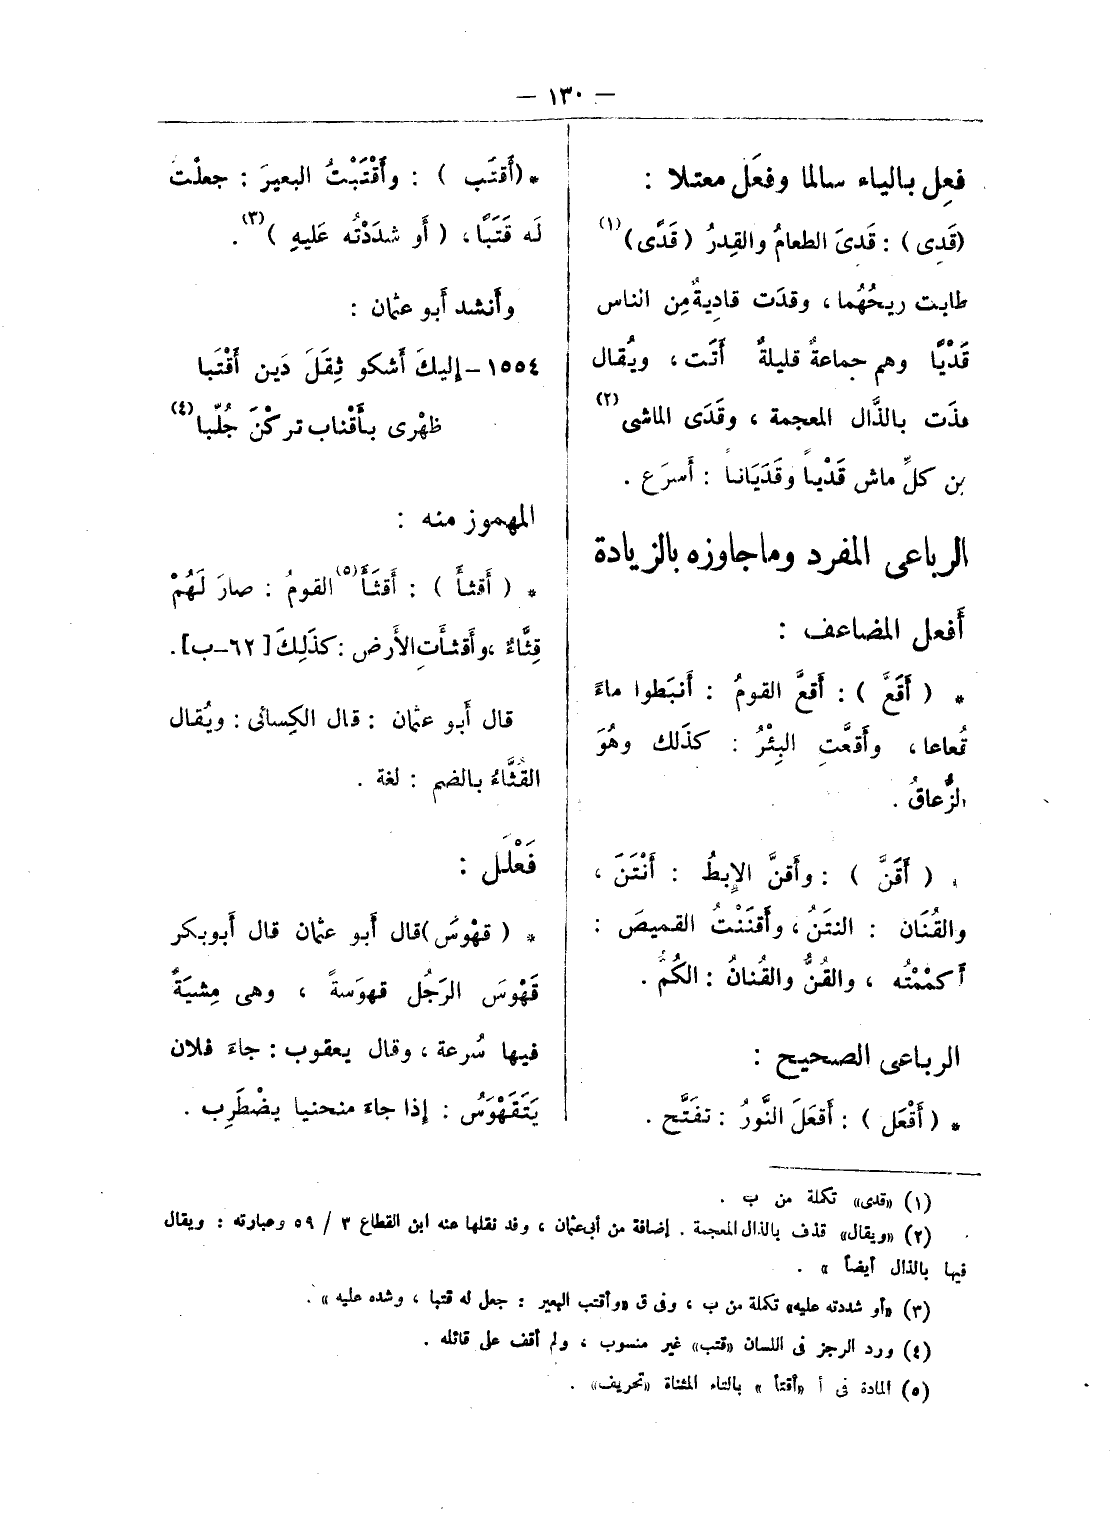 — ١٣٠ —
فعِل بالياء سالما وفعَل معتلا :
(قَدِى) : قَدىَ الطعامُ والقِدرُ (قَدًى)(١)
طابت ريحُهُما ، وقدَت قادِيةٌ مِن الناس
قَدْيًا وهم جماعةٌ قليلةٌ أَتَت ، ويُقال
قذَت بالذَّال المعجمة ، وقَدَى الماشى(٢)
من كلِّ ماش قَدْياً وقَدَيَاناً : أَسرَع .
الرباعى المفرد وما جاوزه بالزيادة
أَفعل المضاعف :
* ( أَقَعَّ ) : أَقعَّ القومُ : أَنبَطوا ماءً
قُعاعا ، وأَقعَّتِ البِئْرُ : كذَلك وهُوَ
الزُّعاقُ .
* ( أَقَنَّ ) : وأَقنَّ الإِبطُ : أَنْتَنَ ،
والقُنَان : النتَنُ ، وأَقنَنْتُ القميصَ :
أَكمَمْتُه ، والقُنُّ والقُنانُ : الكُمُّ .
الرباعى الصحيح :
* ( أَقْعَل ) : أَقعَلَ النَّورُ : تفَتَّح .
* (أَقتَب ) : وأَقْتَبْتُ البعيرَ : جعلْتَ
لَه قَتَبًا ، ( أَو شدَدْتُه عَليهِ )(٣) .
وأَنشد أَبو عثمان :
١٥٥٤ – إِليكَ أَشكو ثِقَلَ دَين أَقْتَبا
ظهْرى بأَقْتاب تركْنَ جُلَّبا(٤)
المهموز منه :
* ( أَقثأَ ) : أَقثَأَ(٥) القومُ : صارَ لَهُمْ
قِثَّاءٌ ، وأَقثأَتِ الأَرض : كذَلِكَ [ ٦٢ – ب] .
قال أَبو عثمان : قال الكِسائى : ويُقال
القُثَّاءُ بالضم : لغة .
فَعْلَل :
* ( قهْوسَ) قال أَبو عثمان قال أَبوبكر
قَهْوَسَ الرَجُل قهوَسةً ، وهى مِشيَةٌ
فيها سُرعة ، وقال يعقوب : جاءَ فلان
يَتَقَهْوَسُ : إذا جاءَ منحنيا يضْطَرِب .
(١) «قدى» تكملة من ب .
(٢) «ويقال» قذف بالذال المعجمة . إضافة من أبى عثمان ، وقد نقلها عنه ابن القطاع ٣ / ٥٩ وعبارته : ويقال
فيها بالذال أيضاً » .
(٣) «أو شددته عليه» تكملة من ب ، وفى ق «وأقتب البعير : جعل له قتبا ، وشده عليه » .
(٤) ورد الرجز فى اللسان «قتب» غير منسوب ، ولم أقف على قائله .
(٥) المادة فى أ «أقتأ » بالتاء المثناة «تحريف» .